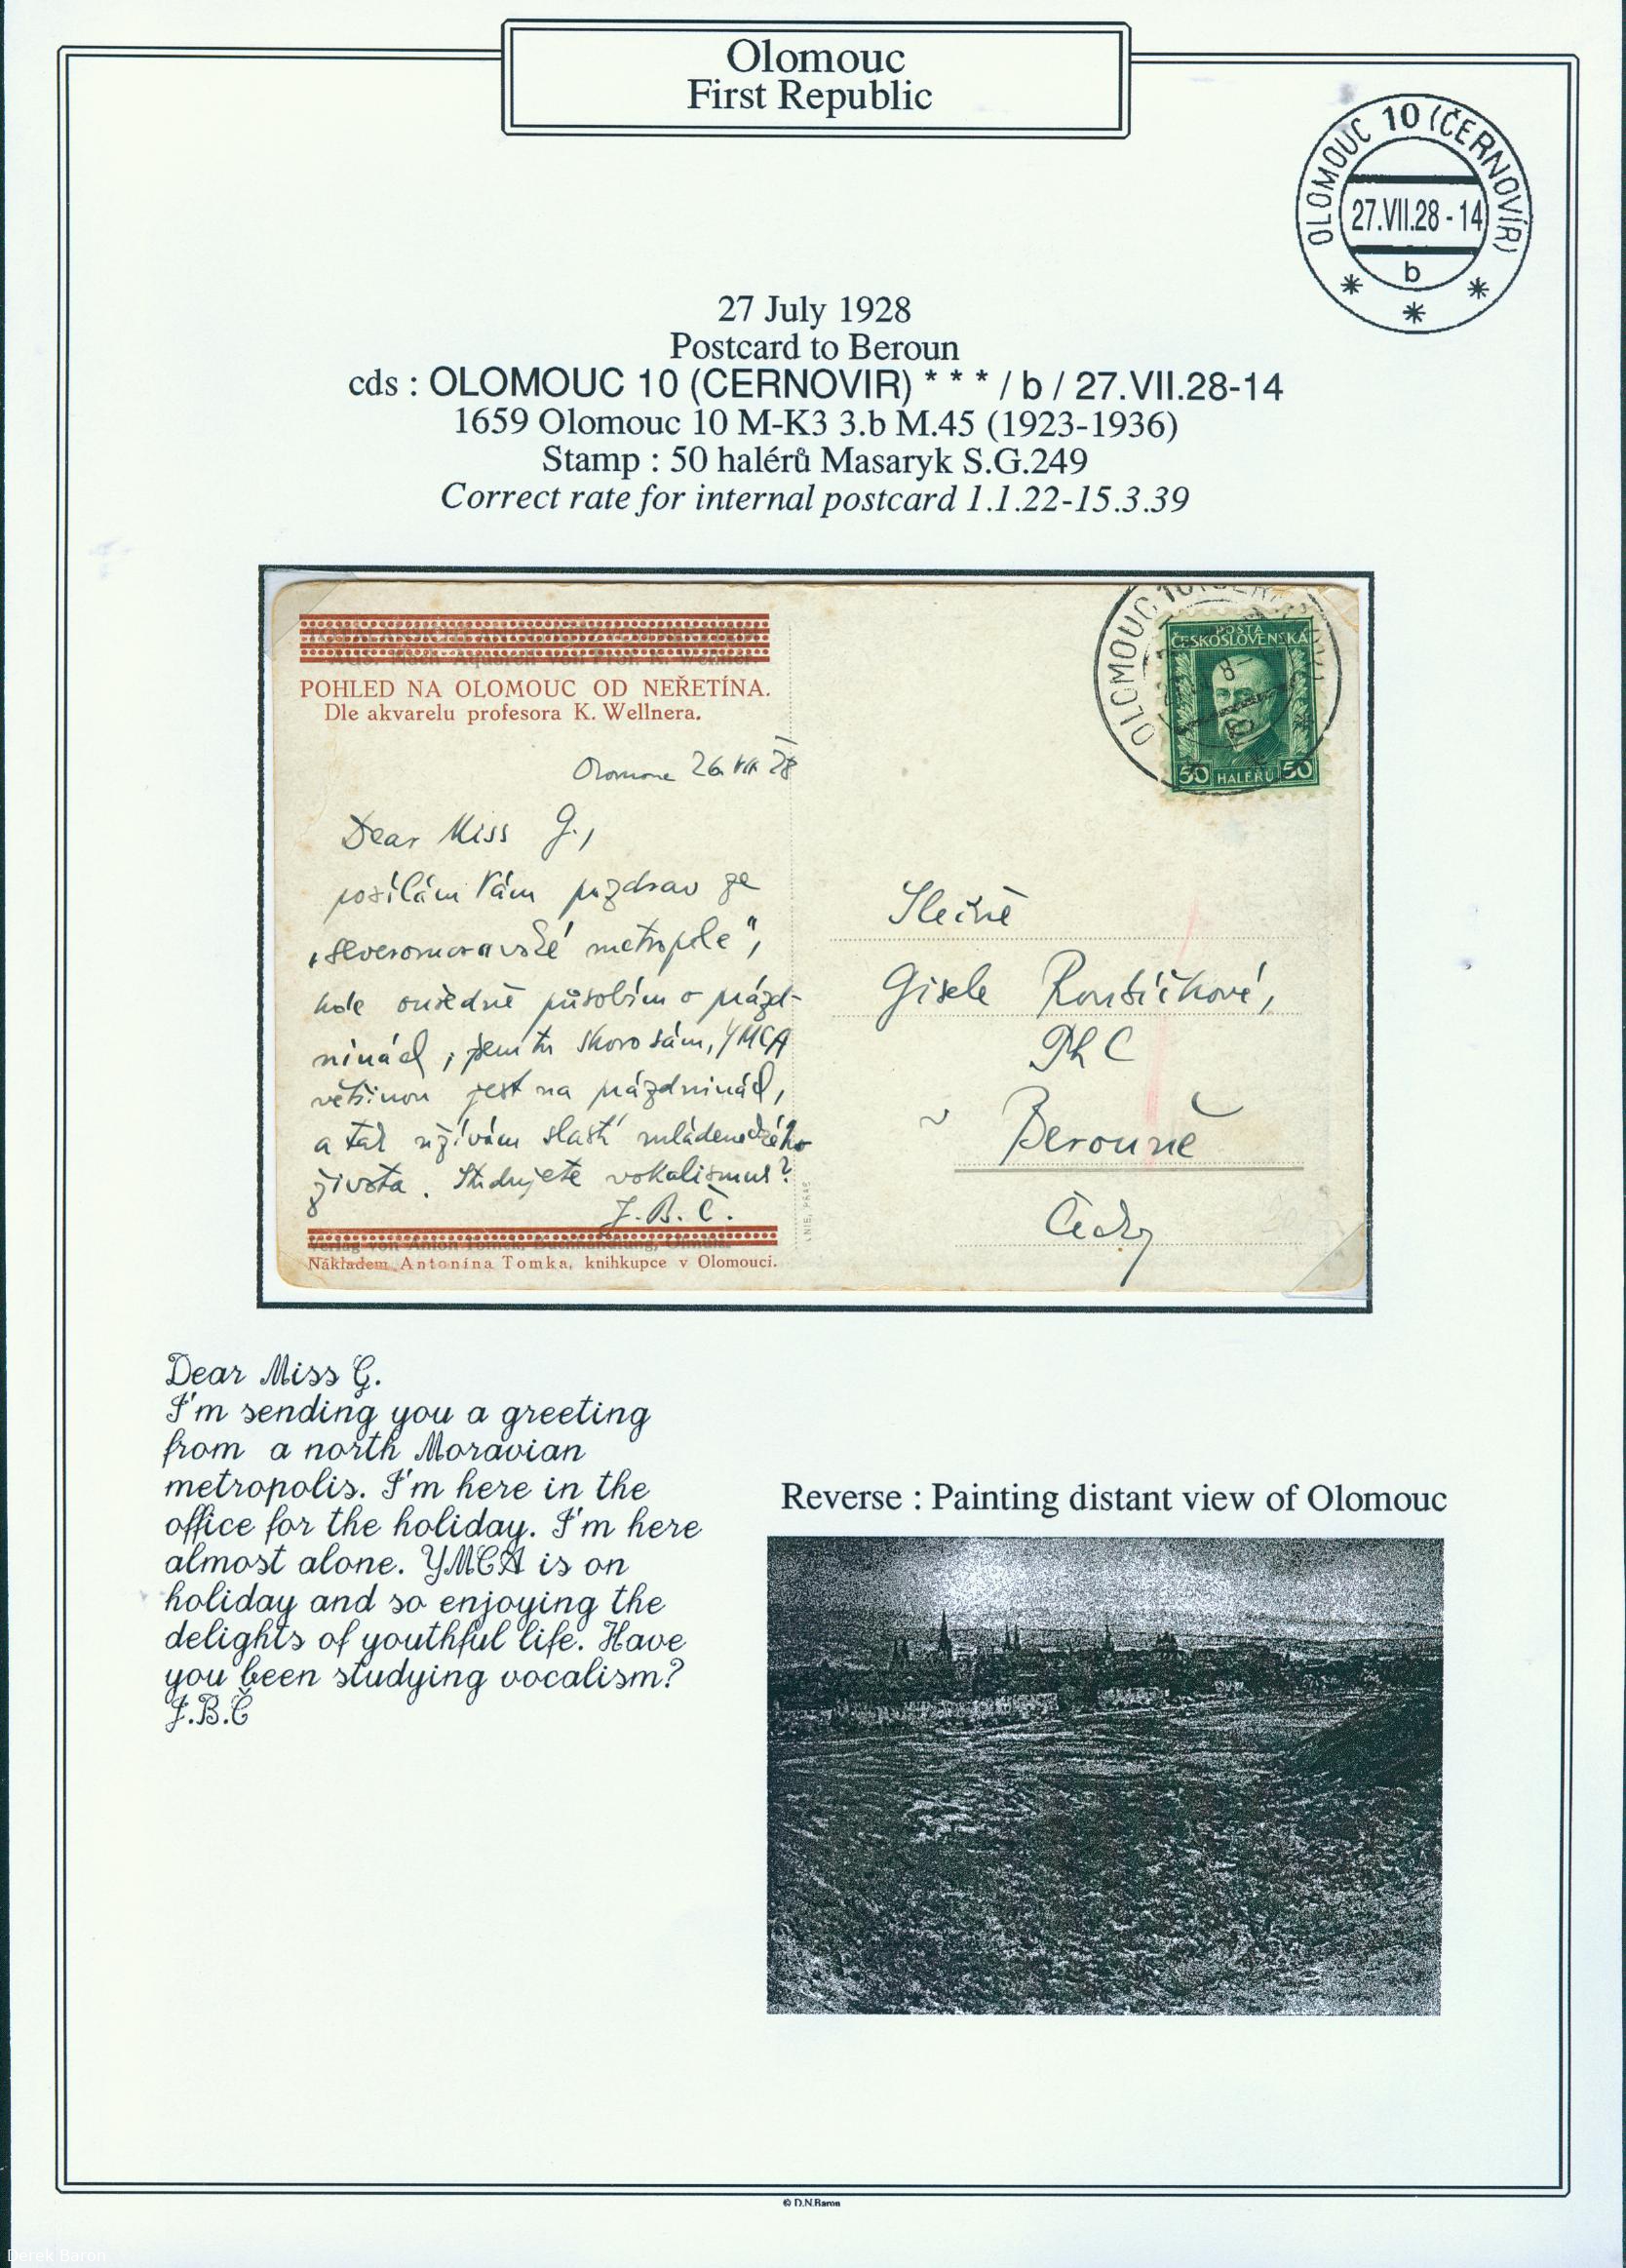 Olomouc
First Republic
OLOMOUC 10 (ČERNOVÍR)
27.VII.28-14
b
* * *
27 July 1928
Postcard to Beroun
cds : OLOMOUC 10 (CERNOVIR) * * * / b / 27.VII.28-14
1659 Olomouc 10 M-K3 3.b M.45 (1923-1936)
Stamp : 50 halérů Masaryk S.G.249
Correct rate for internal postcard 1.1.22-15.3.39
POHLED NA OLOMOUC OD NEŘETÍNA.
Dle akvarelu profesora K. Wellnera.
Olomouc 26. VII 28
Dear Miss G.,
posílám Vám pozdrav ze
„severomoravské metropole",
kde působím o prázd-
ninách, jsem tu skoro sám, YMCA
většinou jest na prázdninách,
a tak užívám slastí mládeneckého
života. Studujete vokalismus?
J.B.Č.
Verlag von Anton Tomek, Buchhandlung, Olmütz.
Nákladem Antonína Tomka, knihkupce v Olomouci.
OLOMOUC 10
POŠTA
ČESKOSLOVENSKÁ
50 HALÉŘŮ 50
Slečně
Gisele
PhC
v Berouně
Čechy
Dear Miss G.
I'm sending you a greeting
from a north Moravian
metropolis. I'm here in the
office for the holiday. I'm here
almost alone. YMCA is on
holiday and so enjoying the
delights of youthful life. Have
you been studying vocalism?
J.B.Č
Reverse : Painting distant view of Olomouc
© D.N.Baron
Derek Baron